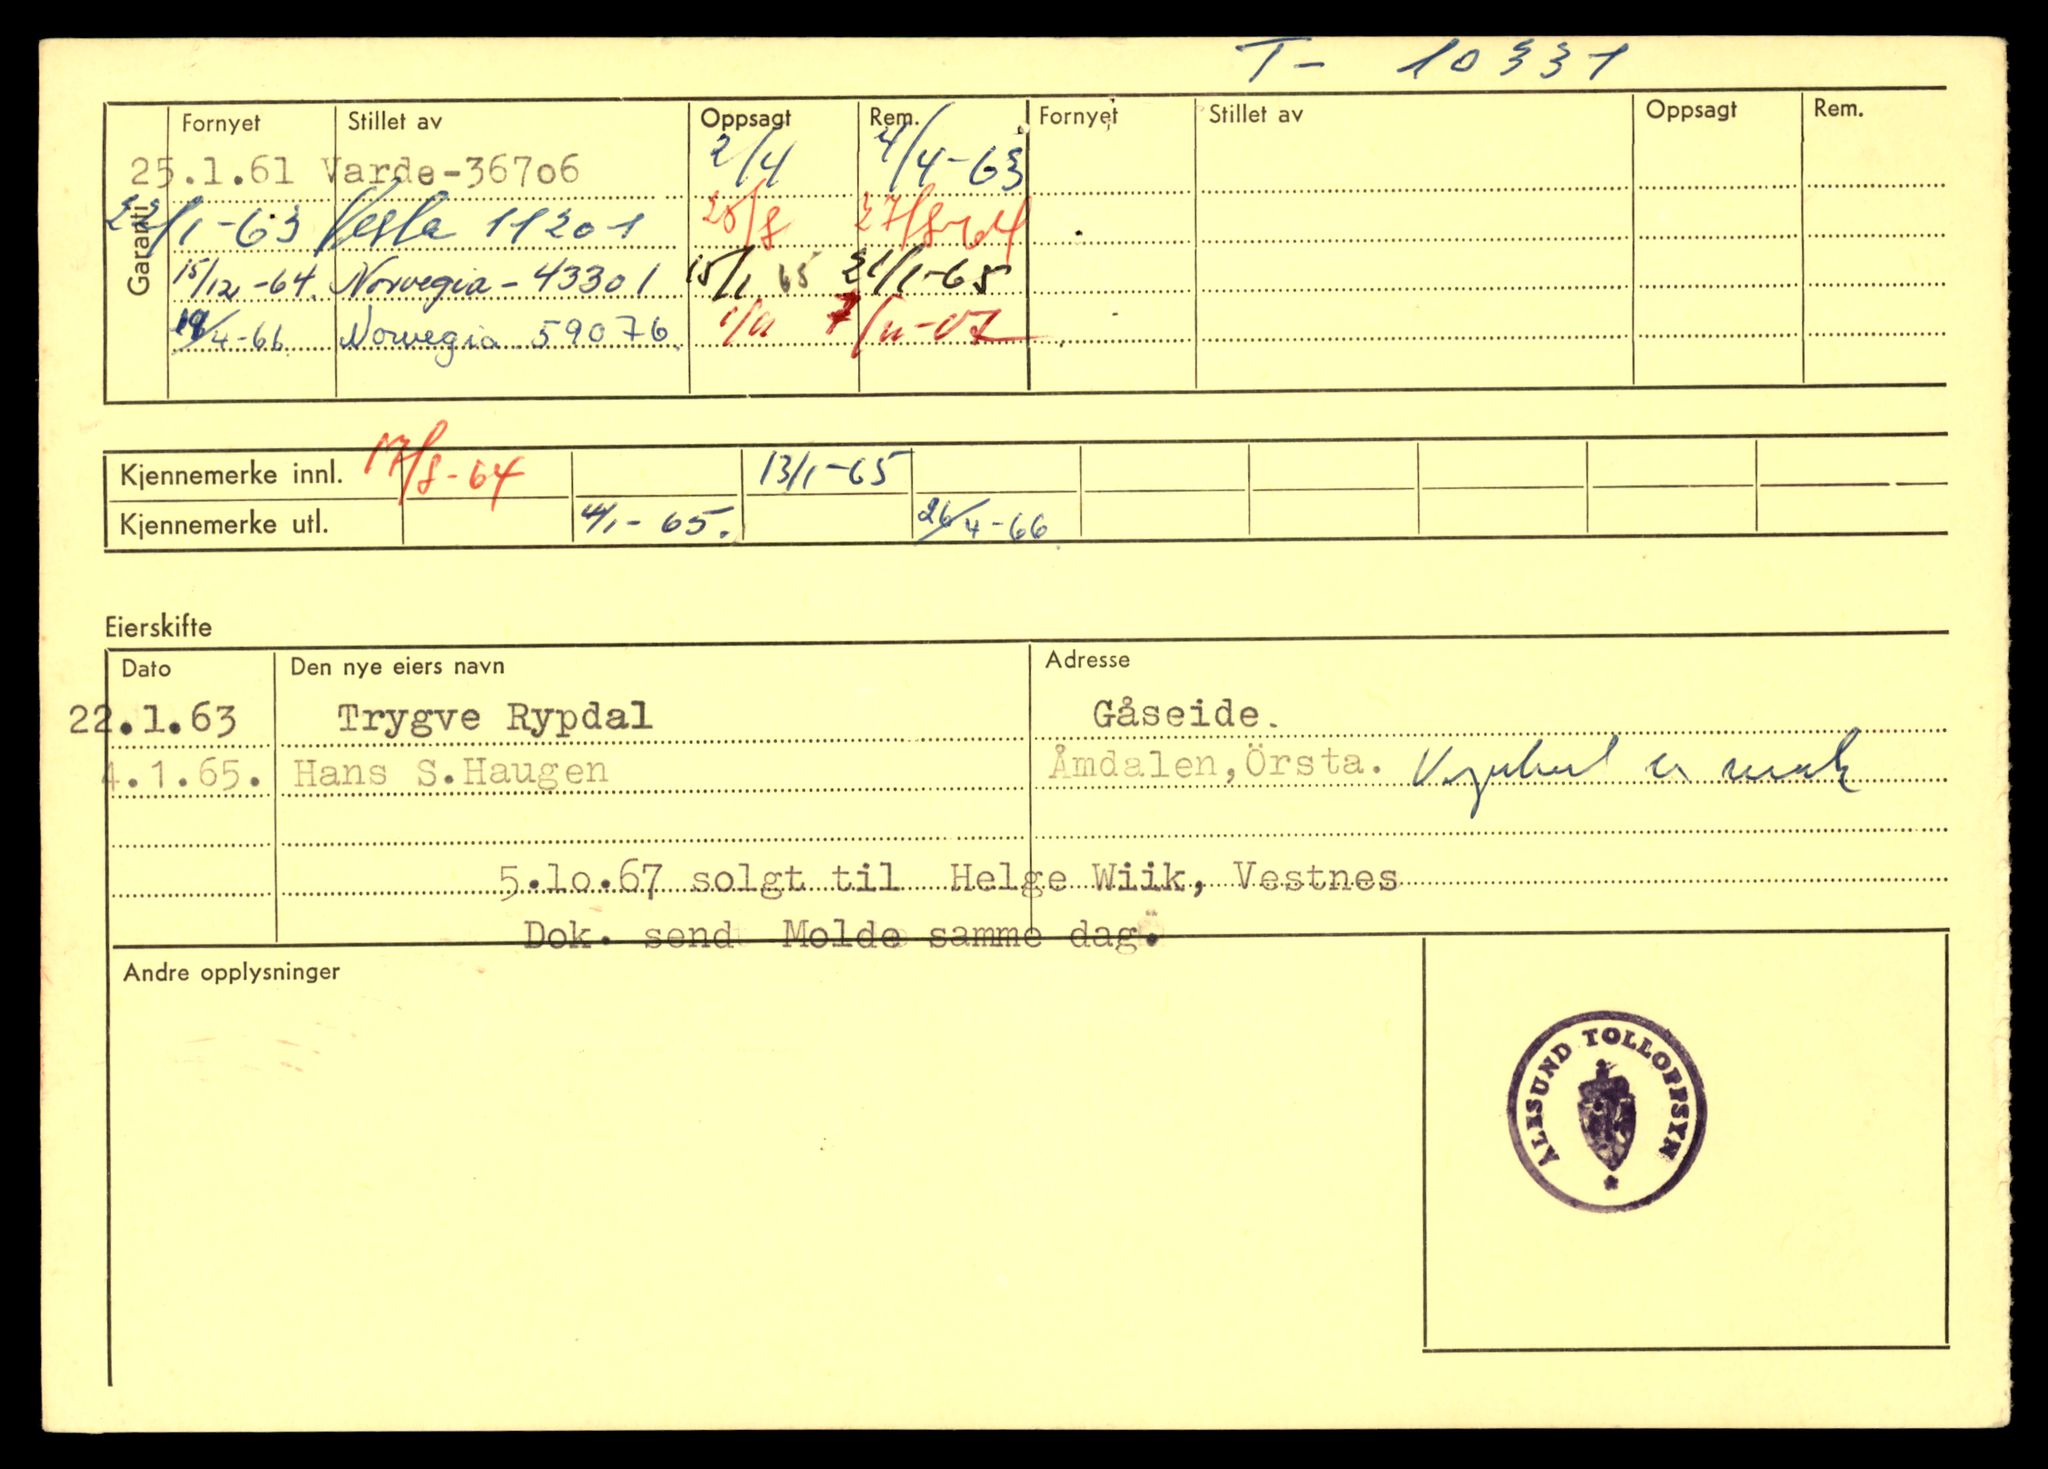 T - 10331
Garanti Fornyet Stillet av Oppsagt Rem. Fornyet Stillet av Oppsagt Rem.
25.1.61 Varde-36706 2/4 4/4-63
22/1-63 Vesta 11201 25/8 27/8-64
15/12-64. Norvegia - 43301 15/1 65 21/1-65
19/4-66 Norvegia 59076.
Kjennemerke innl. 17/8-64 13/1-65
Kjennemerke utl. 4/1-65. 26/4-66
Eierskifte
Dato Den nye eiers navn Adresse
22.1.63 Trygve Rypdal Gåseide.
4.1.65. Hans S.Haugen Åmdalen,Örsta.
5.10.67 solgt til Helge Wiik, Vestnes
Dok. send Molde samme dag.
Andre opplysninger
ÅLESUND TOLLOPPSYN